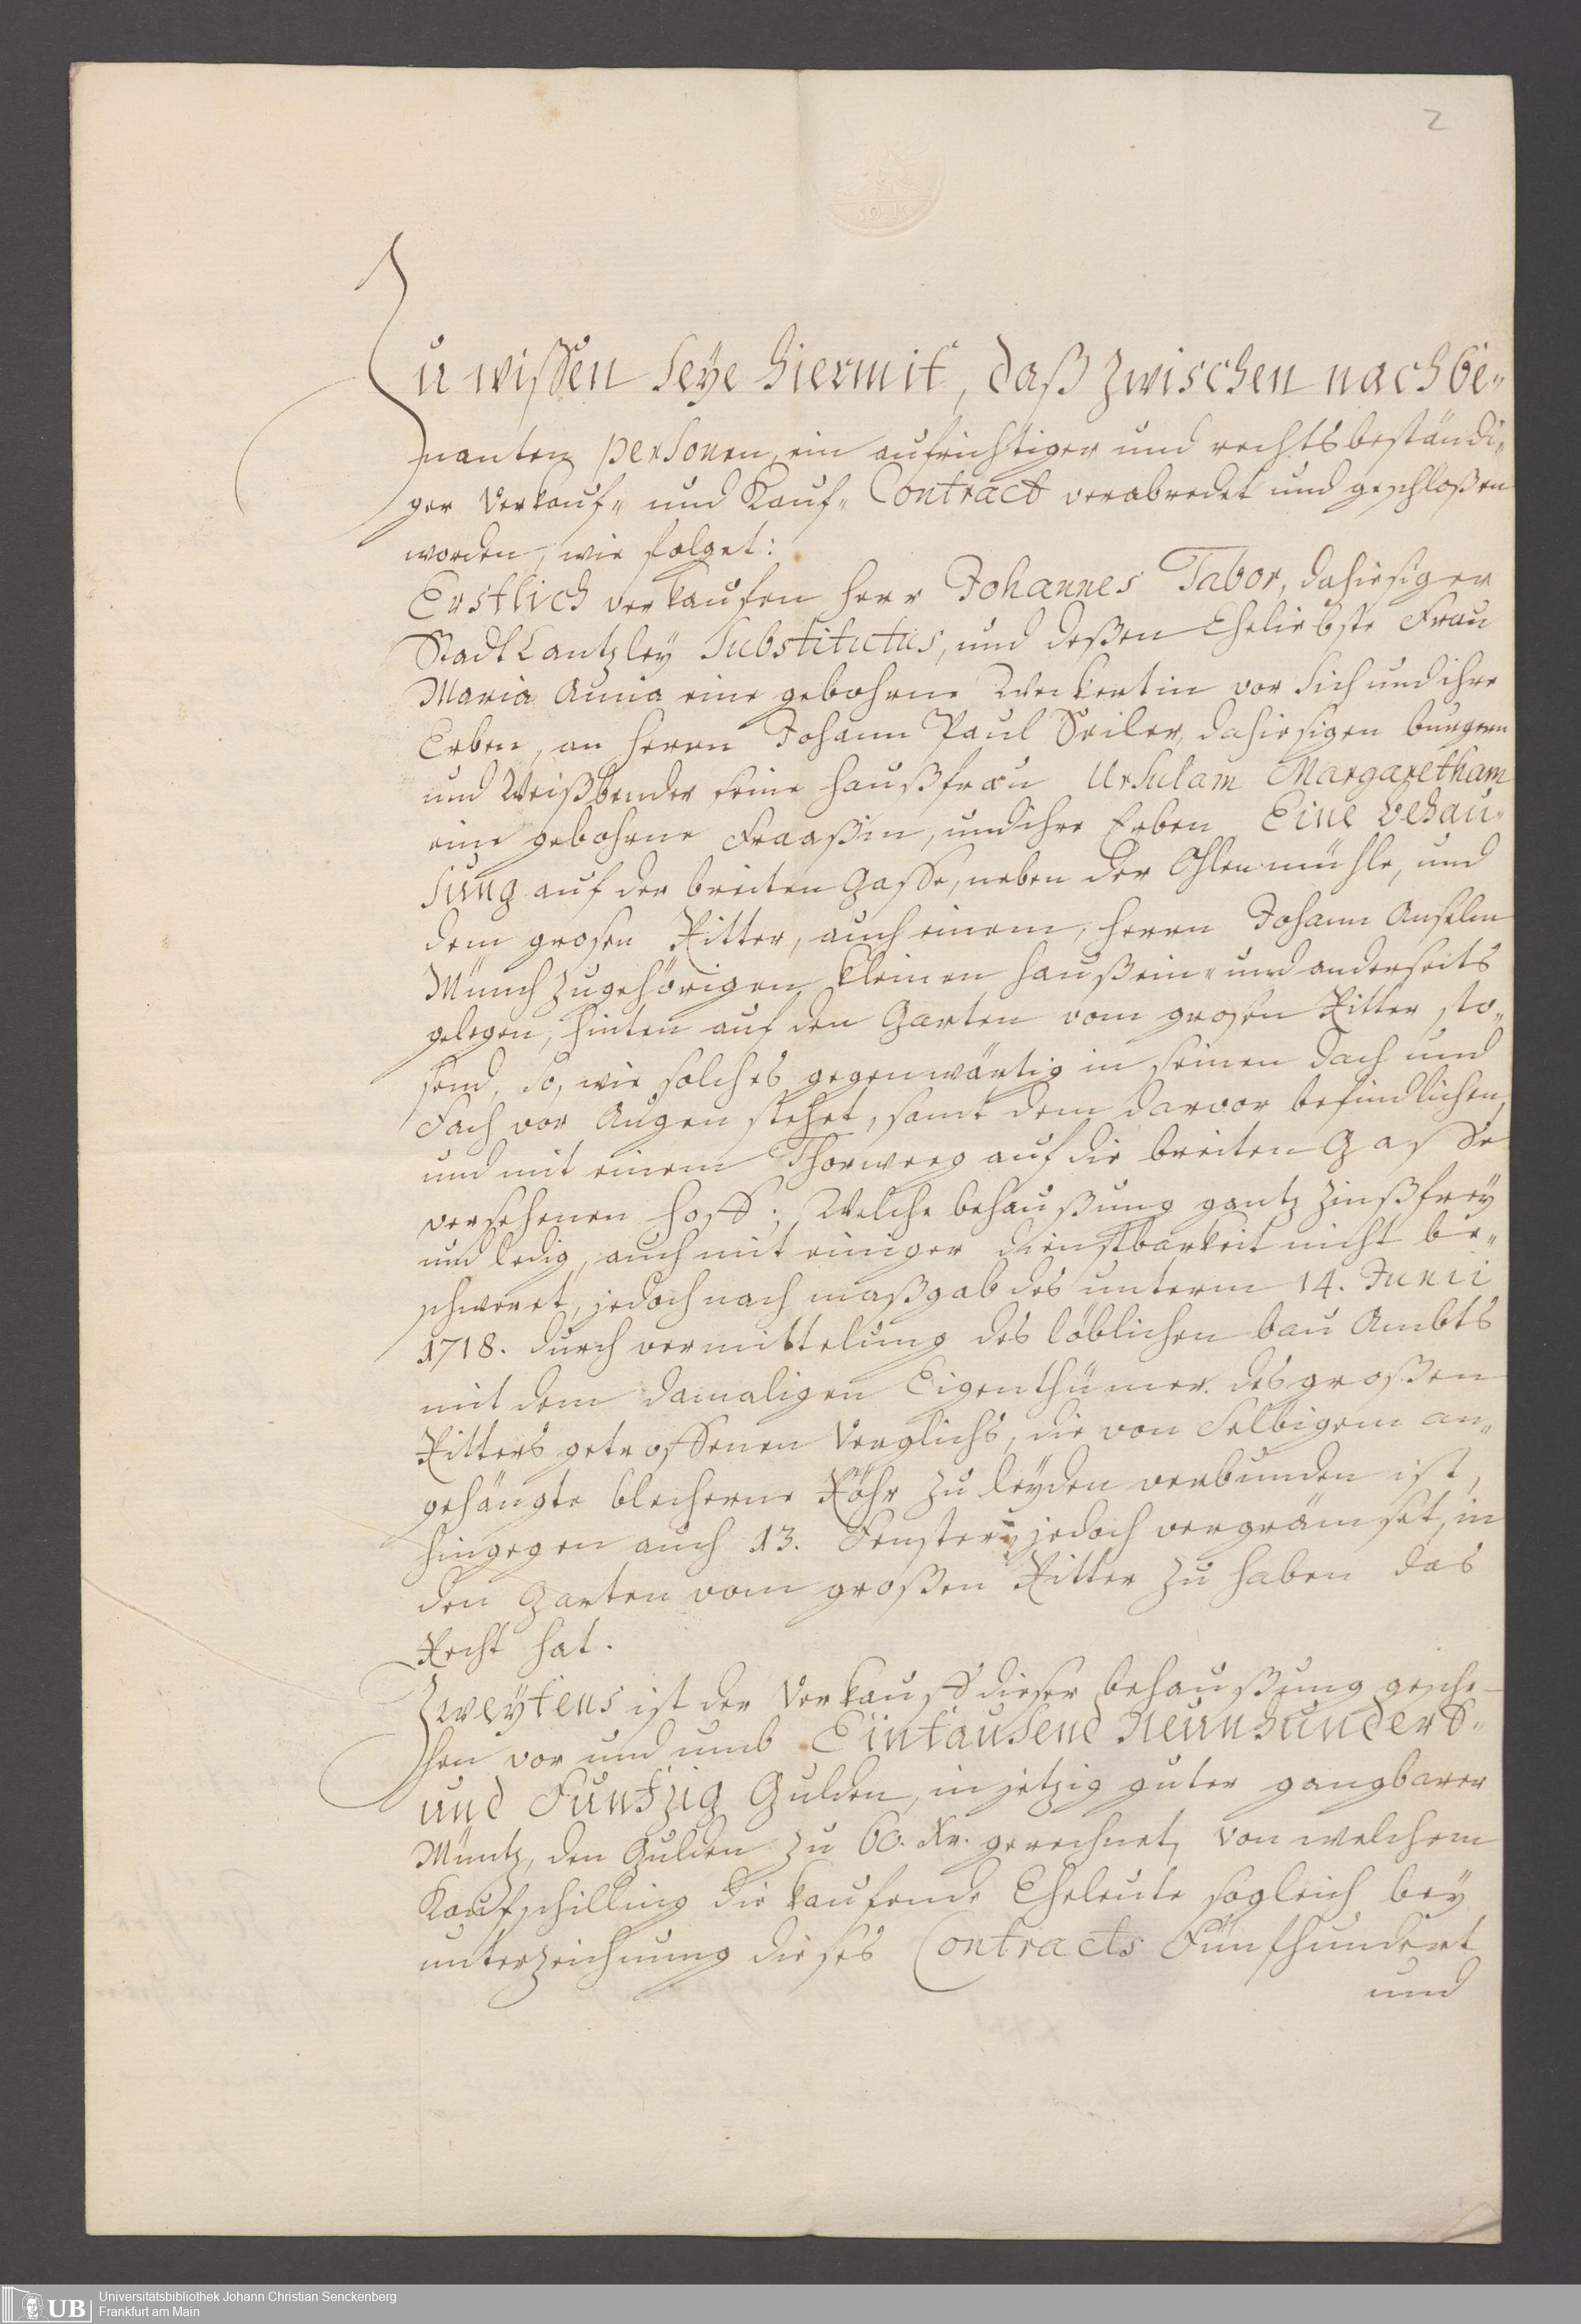 2
Zu wissen seye hiermit, daß zwischen nachbe„
nanten personen, ein aufrichtiger und rechtsbeständi„
ger Verkauf„ und Kauf„ Contract verabredet und geschloßen
worden, wie folget:
Erstlich verkaufen Herr Johannes Tabor, dahiesiger
Stadt Cantzley Substitutus, und deßen Eheliebste Frau
Maria Anna eine gebohrne Weickertin vor sich und ihre
Erben, an Herrn Johann Paul Seiler, dahiesigen burgern
und Weißbender seine Haußfrau Ursulam Margaretham
eine gebohrne Fraaßin, und ihre Erben Eine behau„
sung auf der breiten Gasse, neben der Ohlenmühle, und
dem grosen Ritter, auch einem, Herrn Johann Anselm
Münch zugehörigen kleinen Hauß ein„ und anderseits
gelegen, hinten auf den Garten vom grosen Ritter sto„
send, so, wie solches gegenwärtig in seinen Dach und
Fach vor Augen stehet, samt dem darvor befindlichen,
und mit einem Thorweeg auf die breiten Gasse
versehenen Hoff; Welche behaußung gantz zinßfrey
und ledig, auch mit einiger dienstbarkeit nicht be„
schweret, jedoch nach maßgab des unterm 14. Junii
1718. durch vermittelung des löblichen bau Ambts
mit dem damaligen Eigenthümer des großen
Ritters getroffenen Verglichs, die von selbigem an„
gehängte blecherne Röhr zu leyden verbunden ist,
hingegen auch 13. Fenster, jedoch vergrämset, in
den Garten vom großen Ritter zu haben das
Recht hat.
Zweytens ist der Verkauff dieser behaußung gesche-
hen vor und umb Eintausend Neunhundert„
und Funfzig Gulden, in jetzig guter gangbarer
Müntz, den Gulden zu 60. Xr. gerechnet, von welchem
Kaufschilling die kaufende Eheleute sogleich bey
unterzeichnung dieses Contracts Fünfhundert
und
UB
Universitätsbibliothek Johann Christian Senckenberg
Frankfurt am Main